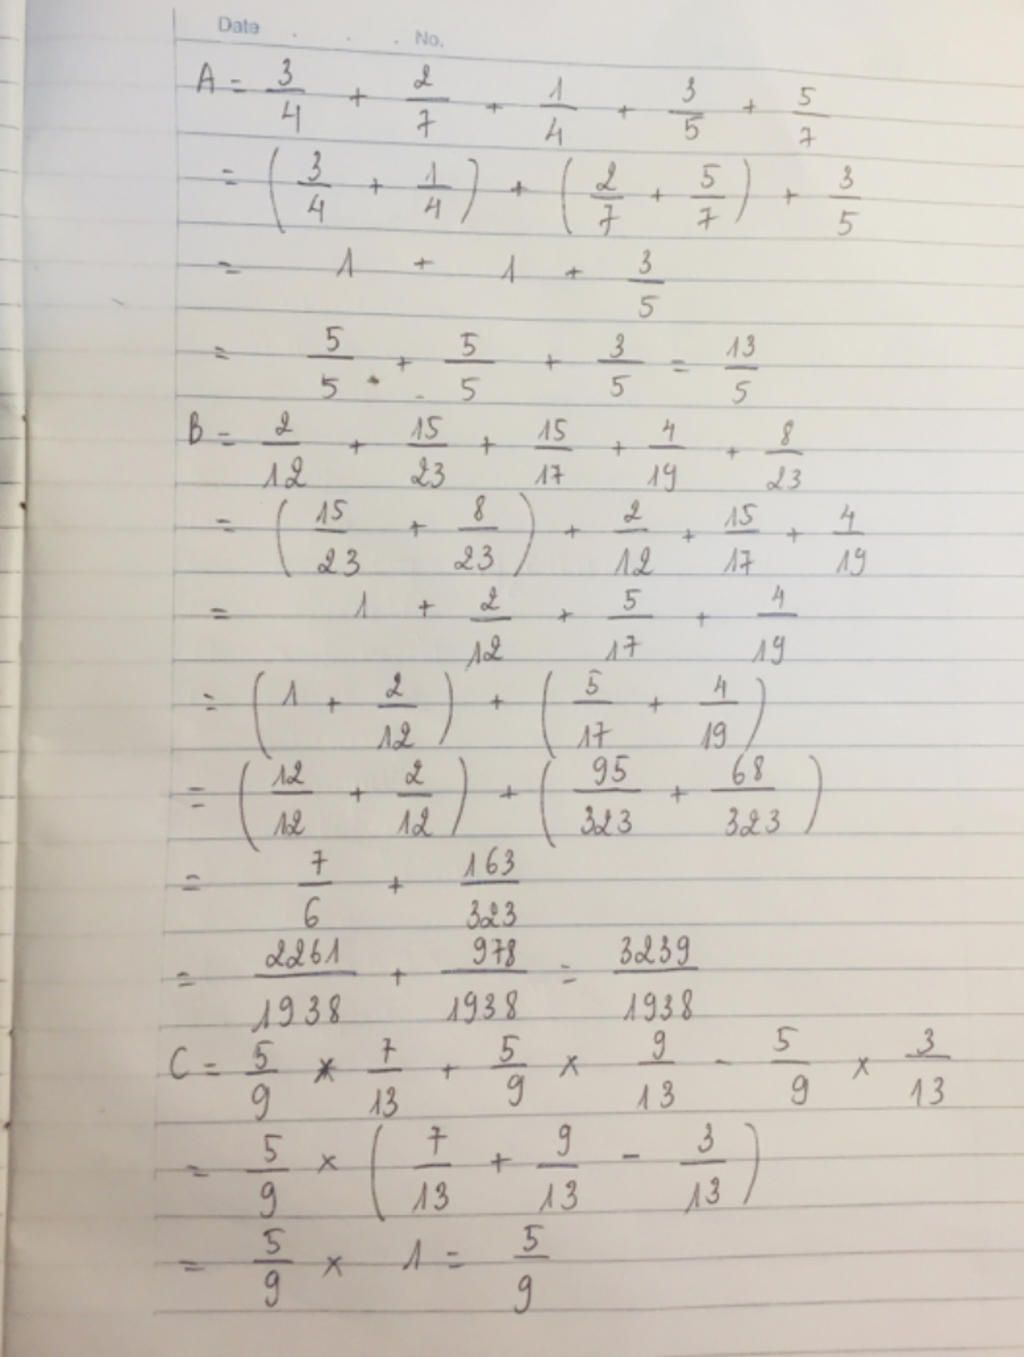 Date . . . No.
A = 3/4 + 2/7 + 1/4 + 3/5 + 5/7
= (3/4 + 1/4) + (2/7 + 5/7) + 3/5
= 1 + 1 + 3/5
= 5/5 + 5/5 + 3/5 = 13/5
B = 2/12 + 15/23 + 15/17 + 4/19 + 8/23
= (15/23 + 8/23) + 2/12 + 15/17 + 4/19
= 1 + 2/12 + 5/17 + 4/19
= (1 + 2/12) + (5/17 + 4/19)
= (12/12 + 2/12) + (95/323 + 68/323)
= 7/6 + 163/323
= 2261/1938 + 978/1938 = 3239/1938
C = 5/9 × 7/13 + 5/9 × 9/13 - 5/9 × 3/13
= 5/9 × (7/13 + 9/13 - 3/13)
= 5/9 × 1 = 5/9